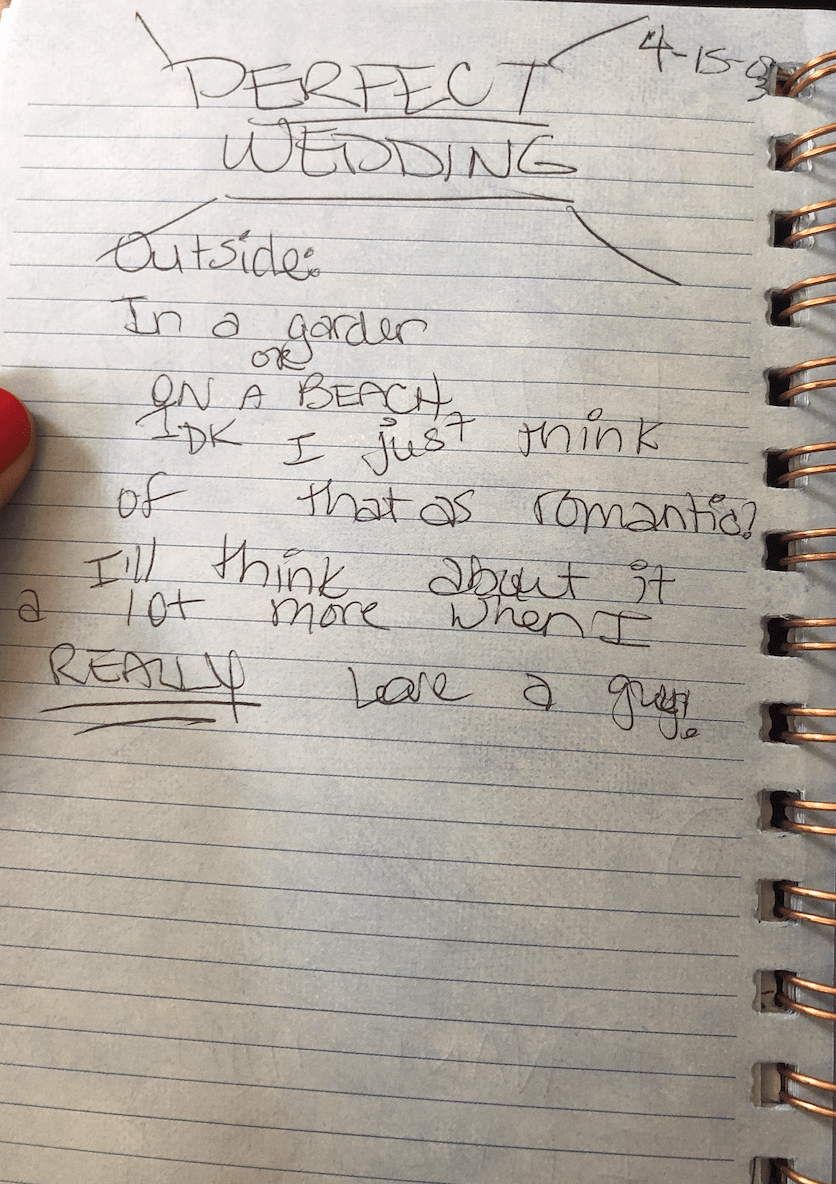 4-15-03
PERFECT
WEDDING
Outside:
In a garden
OR
ON A BEACH
IDK I just think
of that as romantic?
I'll think about it
a lot more when I
REALLY Love a guy!